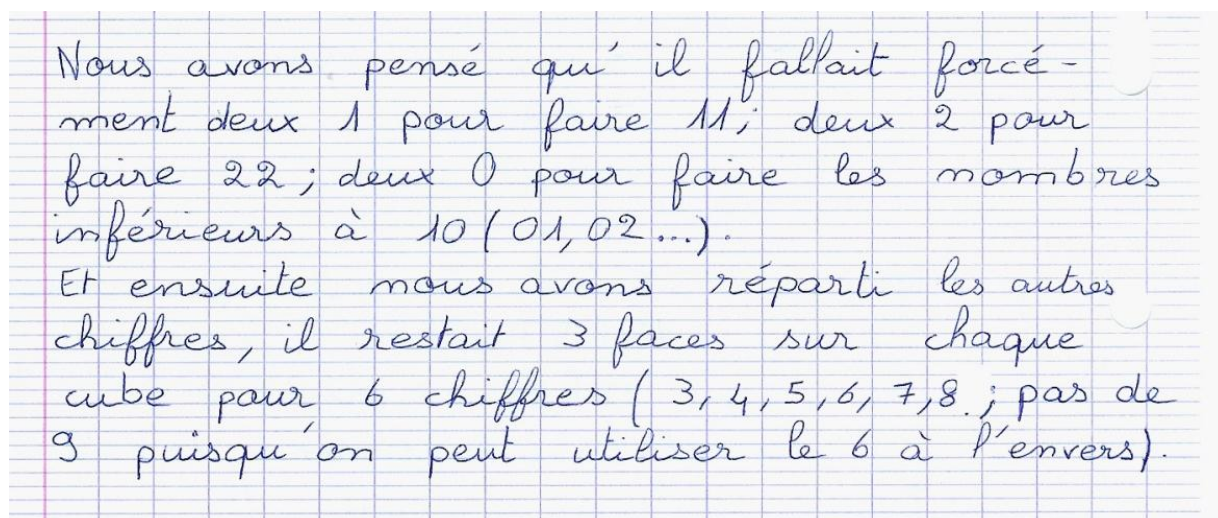 Nous avons pensé qu'il fallait forcé-
ment deux 1 pour faire 11; deux 2 pour
faire 22; deux 0 pour faire les nombres
inférieurs à 10 (01, 02...).
Et ensuite nous avons réparti les autres
chiffres, il restait 3 faces sur chaque
cube pour 6 chiffres (3, 4, 5, 6, 7, 8 ; pas de
9 puisqu'on peut utiliser le 6 à l'envers).